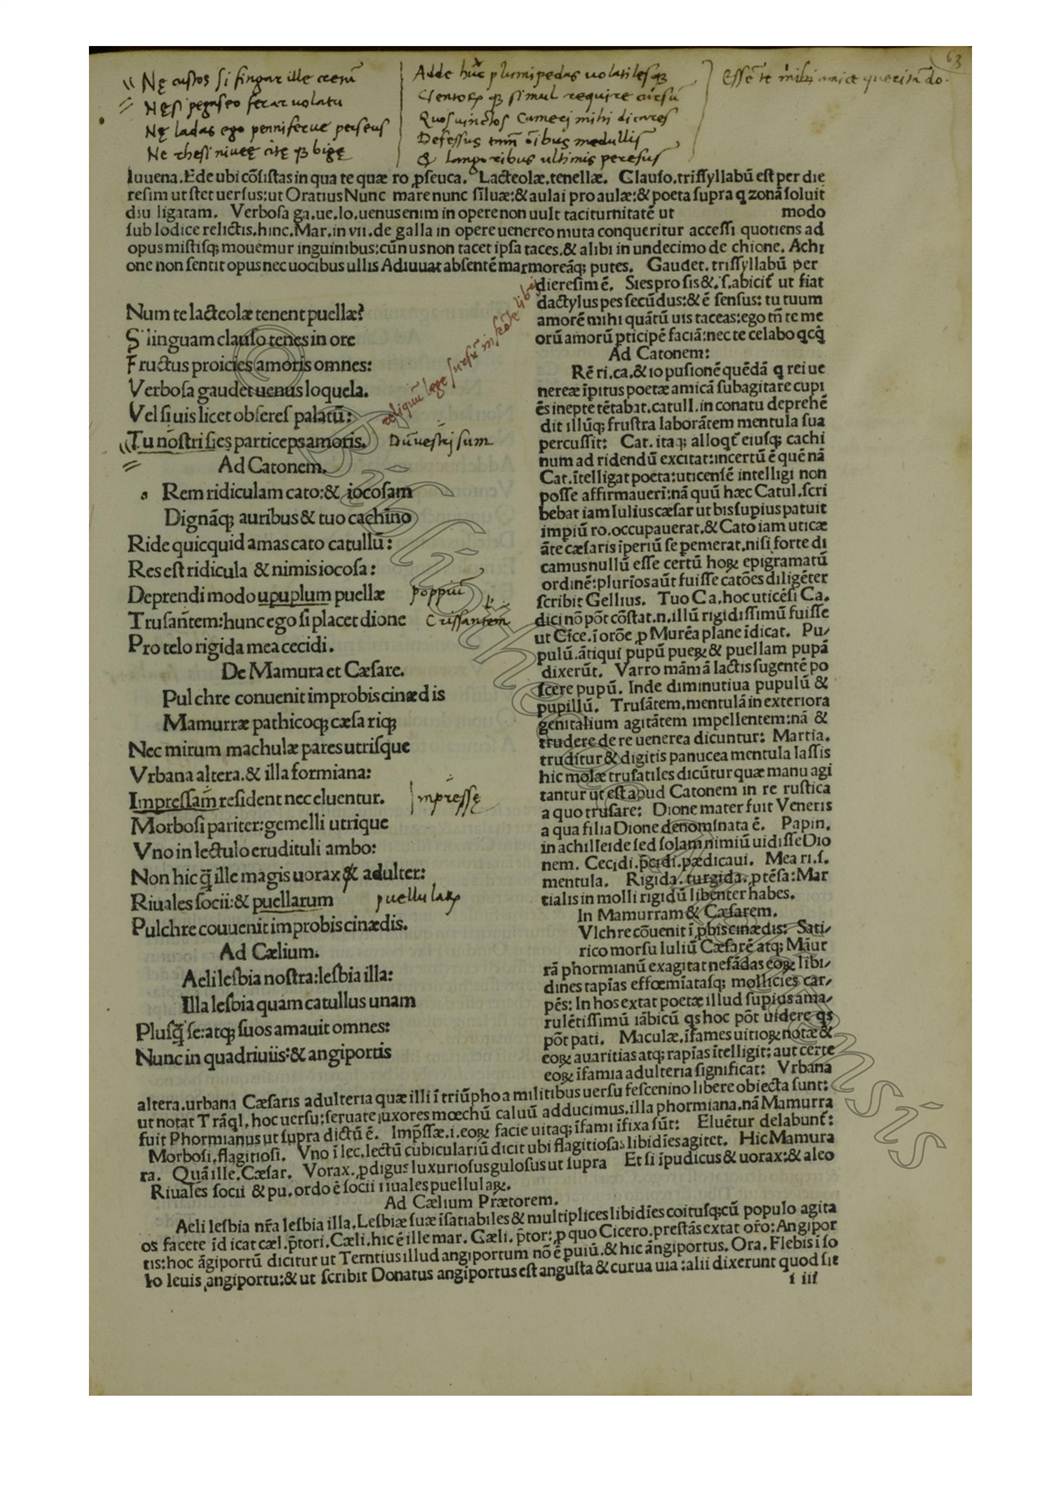 63
Nę custos si fingar ille cretum
Nęsi pegaseo ferar volatu
Nę ladas ego penniferve perseus
Ne rhesi niveę citę bigę
Adde huc plumipedas volatilesq
Ventorum simul require cursum
Quos vinctos Cameri mihi dicares
Defessus tamen omnibus medullis
Et languoribus ultimis peresus
Esse te mihi amice queritando.
Iuuena. Ede ubi cōsistas in qua te quæ ro ꝓseuca. Lacteolæ, tenellæ. Clauso, trissyllabū est per die
resim ut stet uersus: ut Oratius Nunc mare nunc siluæ: & aulai pro aulæ: & poeta supra q zonā soluit
diu ligatam. Verbosa ga. ue. lo. uenus enim in opere non uult taciturnitatē ut modo
sub lodice relictis. hinc. Mar. in vii. de galla in opere uenereo muta conqueritur accessi quotiens ad
opus mistisq; mouemur inguinibus: cūnus non tacet ipsa taces. & alibi in undecimo de chione. Achi
one non sentit opus nec uocibus ullis Adiuuat absentē marmoreāq; putes. Gaudet. trissyllabū per
dieresim ē. Sies pro sis &. s. abicit ut fiat
dactylus pes secūdus: & ē sensus: tu tuum
amorē mihi quātū uis taceas: ego tn̄ te me
orū amorū pticipē faciā: nec te celabo qcq̄
Num te lacteolæ tenent puellæ?
Si linguam clauso tenes in ore
Fructus proicies amoris omnes:
Verbosa gaudet uenus loquela.
Vel si uis licet obseres palatū:
Tu nostri sies particeps amoris. Dū vestri sum
Ad Catonem.
Rem ridiculam cato: & iocosam
Dignāq; auribus & tuo cachino
Ride quicquid amas cato catullū:
Res est ridicula & nimis iocosa:
Deprendi modo upuplum puellæ poppiū
Trusantem: hunc ego si placet dione Crissantem
Pro telo rigida mea cecidi.
De Mamura et Cæsare.
Pulchre conuenit improbis cinædis
Mamurræ pathicoq; cæsariq;
Nec mirum machulæ pares utrisque
Vrbana altera. & illa formiana:
Impressam resident nec eluentur. Impressę
Morbosi pariter: gemelli utrique
Vno in lectulo erudituli ambo:
Non hic q̄ ille magis uorax & adulter:
Riuales socii: & puellarum puellularum
Pulchre couuenit improbis cinædis.
Ad Cælium.
Aeli lesbia nostra: lesbia illa:
Illa lesbia quam catullus unam
Plusq̄ se: atq; suos amauit omnes:
Nunc in quadriuiis: & angiportis
Ad Catonem:
Rē ri. ca. & io pusionē quēdā q rei ue
nereæ īpitus poetæ amicā subagitare cupi
ēs inepte tētabat. catull. in conatu deprehē
dit illūq; frustra laborātem mentula sua
percussit: Cat. itaq; alloqt̄ eiusq; cachi
num ad ridendū excitat: incertū ē quē nā
Cat. ītelligat poeta: uticensē intelligi non
posse affirmaueri: nā quū hæc Catul. scri
bebat iam Iulius cæsar ut bis supius patuit
impiū ro. occupauerat. & Cato iam uticæ
āte cæsaris īperiū se pemerat. nisi forte di
camus nullū esse certū hoꝝ epigramatū
ordinē: plurios aūt fuisse catões diligēter
scribit Gellius. Tuo Ca. hoc uticēsi Ca.
dici nō pōt cōstat. n. illū rigidissimū fuisse
ut Cice. ī orōe ꝓ Murēa plane īdicat. Pu/
pulū. ātiqui pupū pueꝝ & puellam pupā
dixerūt. Varro māmā lactis sugentē po
scere pupū. Inde diminutiua pupulū &
pupillū. Trusātem. mentulā in exteriora
genitalium agitātem impellentem: nā &
trudere de re uenerea dicuntur: Martia.
truditur & digitis panucea mentula lassis
hic molæ trusatiles dicūtur quæ manu agi
tantur ut est apud Catonem in re rustica
a quo trusare: Dione mater fuit Veneris
a qua filia Dione denominata ē. Papin.
in achilleide sed solam nimiū uidisse Dio
nem. Cecidi. p̄cidi. pædicaui. Mea ri. s.
mentula. Rigida. turgida. ptēsa: Mar
tialis in molli rigidū libenter habes.
In Mamurram & Cæsarem.
Vlchre cōuenit ī pbis cinædis: Sati/
rico morsu Iuliū Cæsarē atq; Māur
rā phormianū exagitat nefādas eoꝝ libi/
dines rapias effœmiatasq; mollicies car/
pēs: In hos extat poetæ illud supius ama/
rulētissimū iābicū qs hoc pōt uidere qs
pōt pati. Maculæ. īfames uitioꝝ notæ &
eoꝝ auaritias atq; rapīas ītelligit: aut certe
eoꝝ īfamia adulteria significat: Vrbana
altera. urbana Cæsaris adulteria quæ illi ī triūpho a militibus uersu fescenino libere obiecta sunt:
ut notat Trāql. hoc uersu: seruate uxores mœchū caluū adducimus. illa phormiana. nā Mamurra
fuit Phormianus ut supra dictū ē. Imp̄ssæ. i. eoꝝ facie uitaq; īfami īfixa sūt: Eluētur delabunt̄:
Morbosi, flagitiosi. Vno ī lec. lectū cubiculariū dicit ubi flagitiosas libidīes agitet. Hic Mamura
ra. Quā ille. Cæsar. Vorax. ꝓdigus luxuriosus gulosus ut supra Et si īpudicus & uorax: & aleo
Riuales socii & pu. ordo ē socii riuales puellulaꝝ.
Ad Cælium Prætorem.
Aeli lesbia nr̄a lesbia illa. Lesbiæ suæ īsatiabiles & multiplices libidīes coitusq; cū populo agita
os facete īdicat cæl. p̄tori. Cæli. hic ē ille mar. Gæli. p̄tor: ꝓ quo Cicero. prestās extat oro: Angipor
tis: hoc āgiportū dicitur ut Terntius illud angiportum nō ē peruiū. & hic āngiportus. Ora. Flebis ī so
lo leuis angiportu: & ut scribit Donatus angiportus est angusta & curua uia: alii dixerunt quod sit
i iii
© Bibliotheca Parmensis